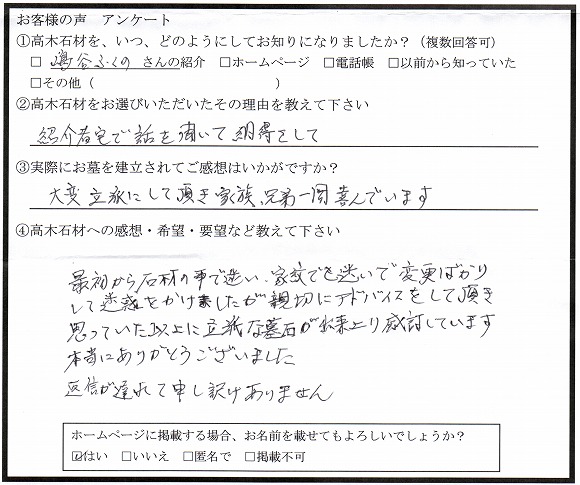 お客様の声 アンケート
①高木石材を、いつ、どのようにしてお知りになりましたか?(複数回答可)
□ 嶋谷ふくの さんの紹介 □ホームページ □電話帳 □以前から知っていた
□その他( )
②高木石材をお選びいただいたその理由を教えて下さい
紹介者宅で話を聞いて納得をして
③実際にお墓を建立されてご感想はいかがですか?
大変立派にして頂き家族、兄弟一同喜んでいます
④高木石材への感想・希望・要望など教えて下さい
最初から石材の事で迷い、家紋でも迷いで変更ばかり
して迷惑をかけましたが親切にアドバイスをして頂き
思っていた以上に立派な墓石が出来上り感謝しています
本当にありがとうございました
返信が遅れて申し訳ありません
ホームページに掲載する場合、お名前を載せてもよろしいでしょうか?
☑はい □いいえ □匿名で □掲載不可